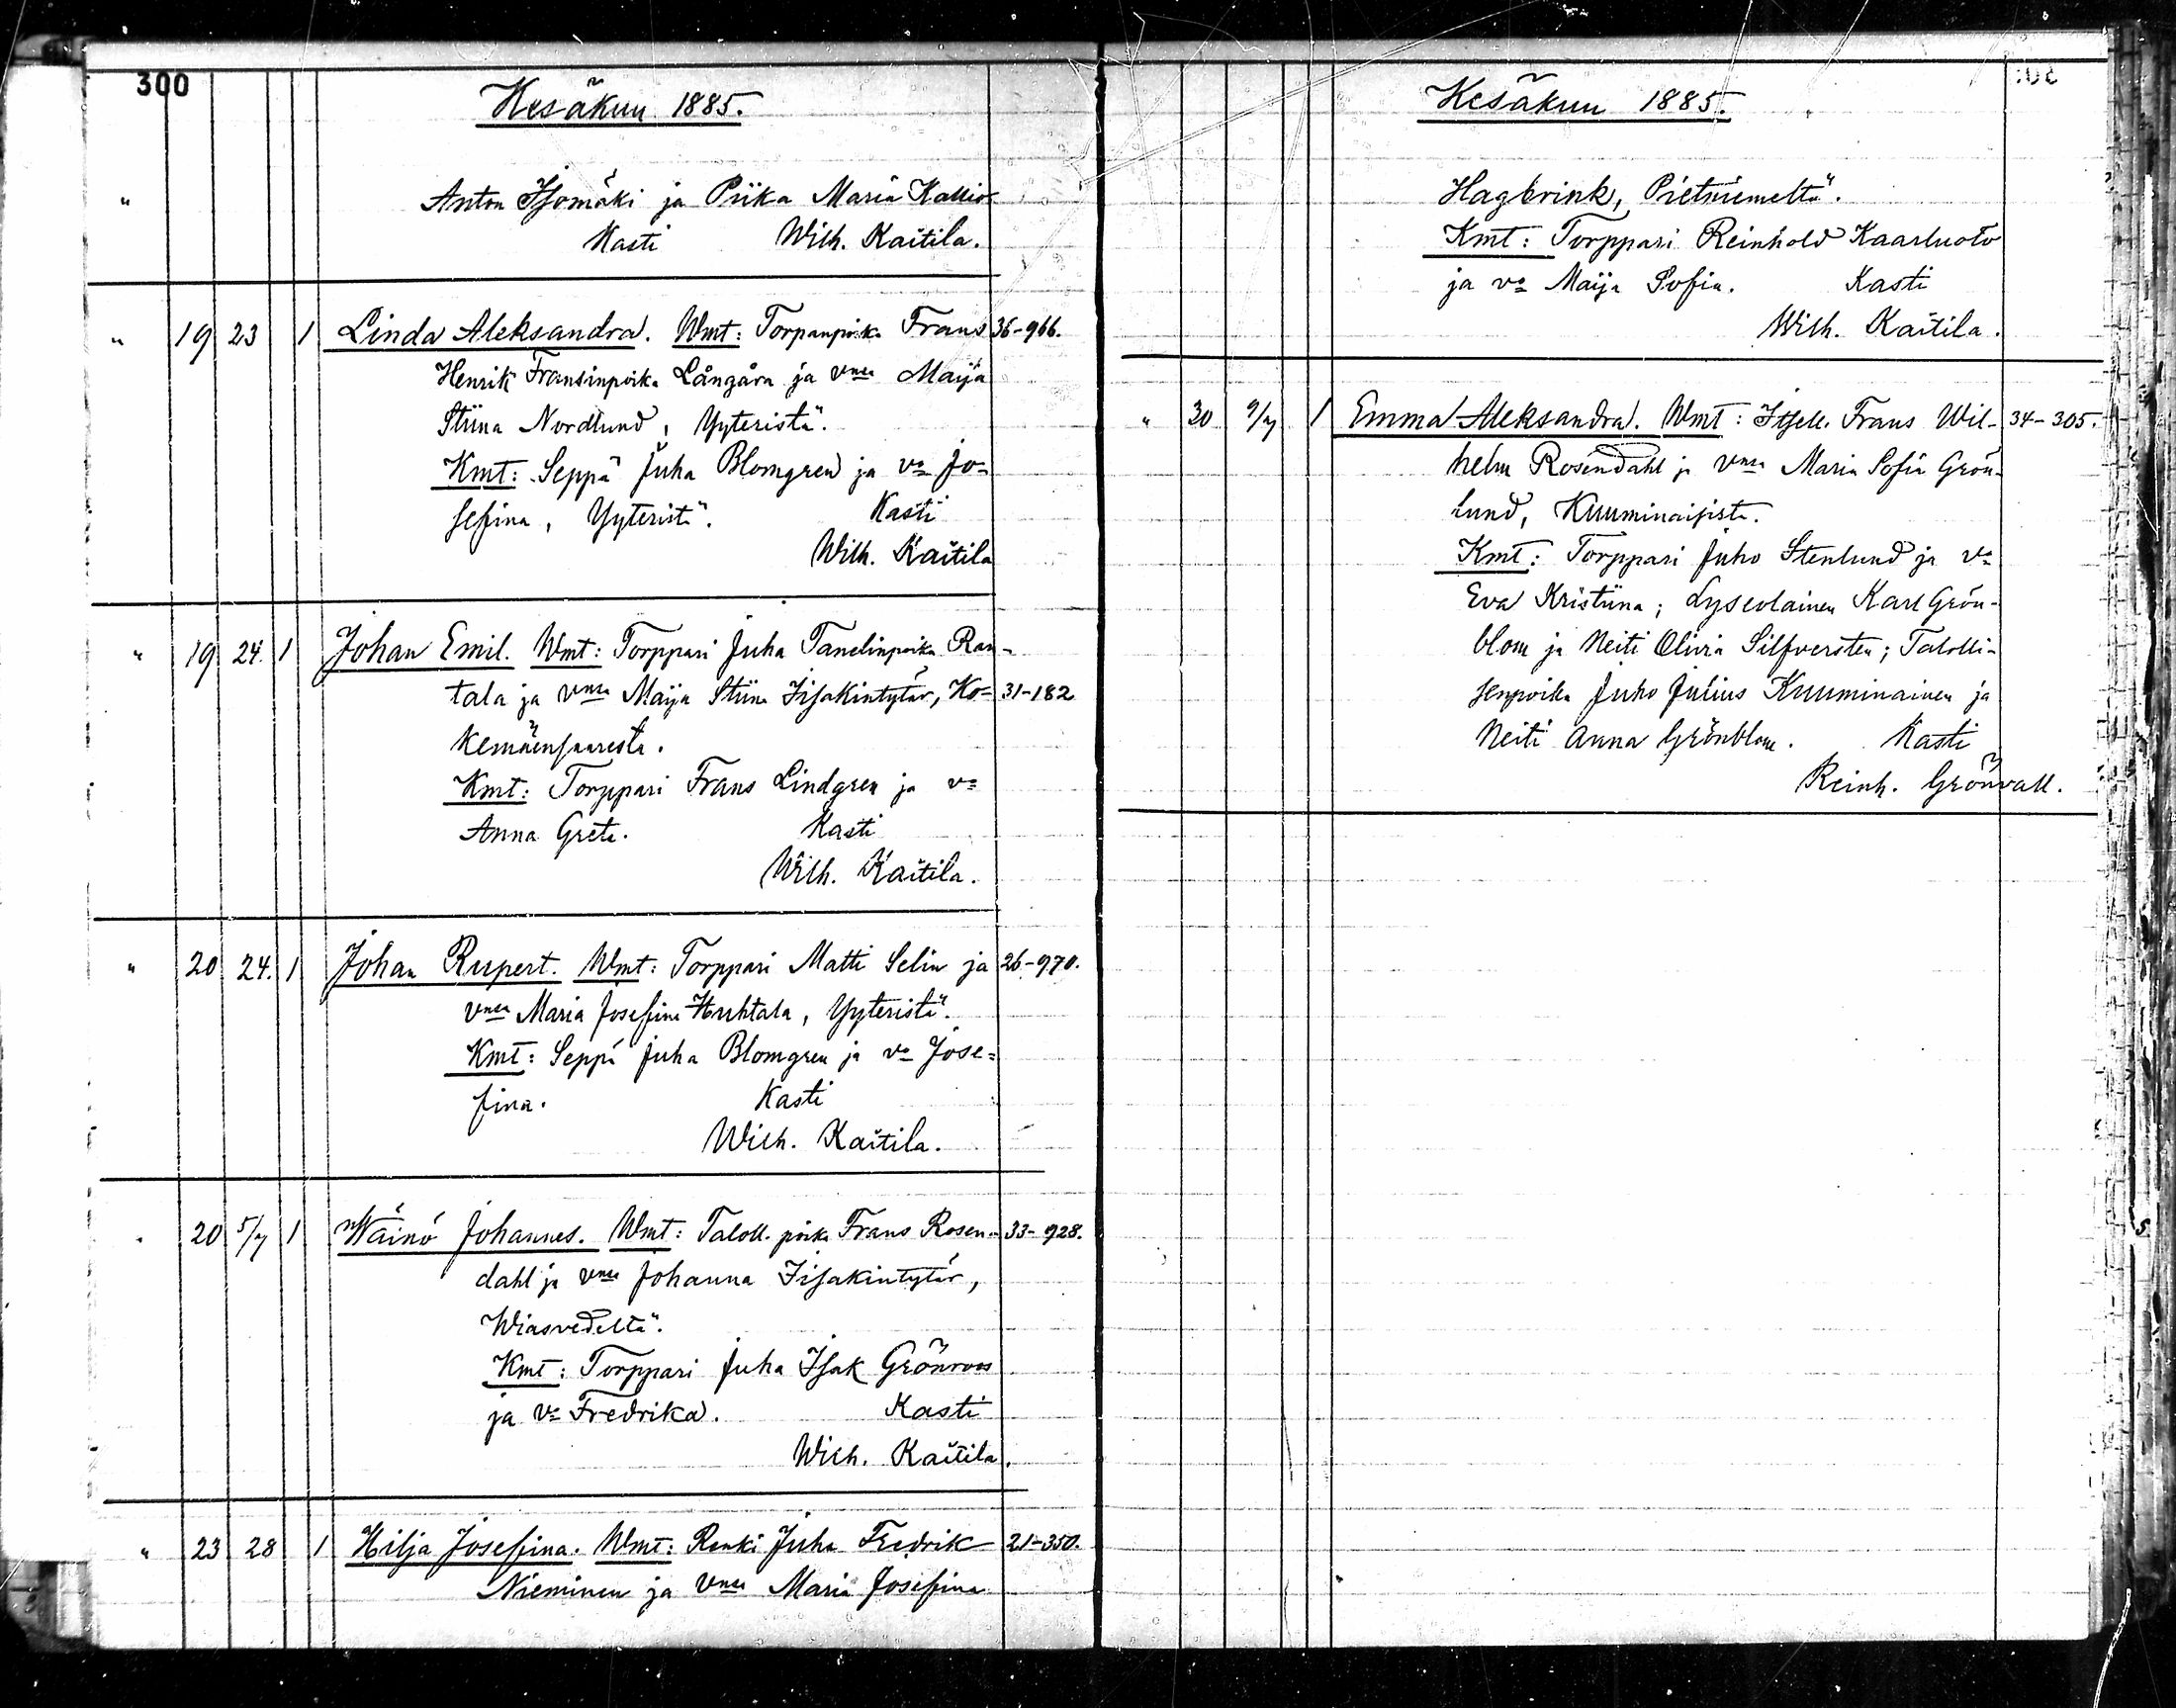 300
Kesäkuu 1885.
" Anton Isomäki ja Piika Maria Kallio
Kasti Wilh. Kaitila.
" 19 23 1 Linda Aleksandra. Wmt: Torpanpoika Frans 36-966.
Henrik Fransinpoika Långåra ja vmsa Maija
Stiina Nordlund, Yyteristä.
Kmt: Seppä Juha Blomgren ja va Jo-
sefina, Yyteristä. Kasti
Wilh. Kaitila
" 19 24. 1 Johan Emil. Wmt: Torppari Juha Tanelinpoika Ran-
tala ja vmsa Maija Stiina Iisakintytär, Ko- 31-182
kemäensaaresta.
Kmt: Torppari Frans Lindgren ja va
Anna Greta. Kasti
Wilh. Kaitila.
" 20 24. 1 Johan Rupert. Wmt: Torppari Matti Selin ja 26-970.
vmsa Maria Josefina Huhtala, Yyteristä.
Kmt: Seppä Juha Blomgren ja va Jose-
fina. Kasti
Wilh. Kaitila.
" 20 5/7 1 Wäinö Johannes. Wmt: Taloll. poika Frans Rosen- 33-928.
dahl ja vmsa Johanna Iisakintytär,
Wiasvedeltä.
Kmt: Torppari Juha Isak Grönroos
ja va Fredrika. Kasti
Wilh. Kaitila.
" 23 28 1 Hilja Josefina. Wmt: Renki Juha Fredrik 21-350.
Nieminen ja vmsa Maria Josefina
Kesäkuu 1885.
Hagbrink, Pietniemeltä.
Kmt: Torppari Reinhold Kaarluoto
ja va Maija Sofia. Kasti
Wilh. Kaitila.
" 30 9/7 1 Emma Aleksandra. Wmt: Itsell. Frans Wil- 34-305.
helm Rosendahl ja vmsa Maria Sofia Grön-
lund, Kuuminaisista.
Kmt: Torppari Juho Stenlund ja va
Eva Kristiina; Lyseolainen Karl Grön-
blom ja Neiti Olivia Silfversten; Talolli-
senpoika Juho Julius Kuuminainen ja
Neiti Anna Grönblom. Kasti
Reinh. Grönvall.